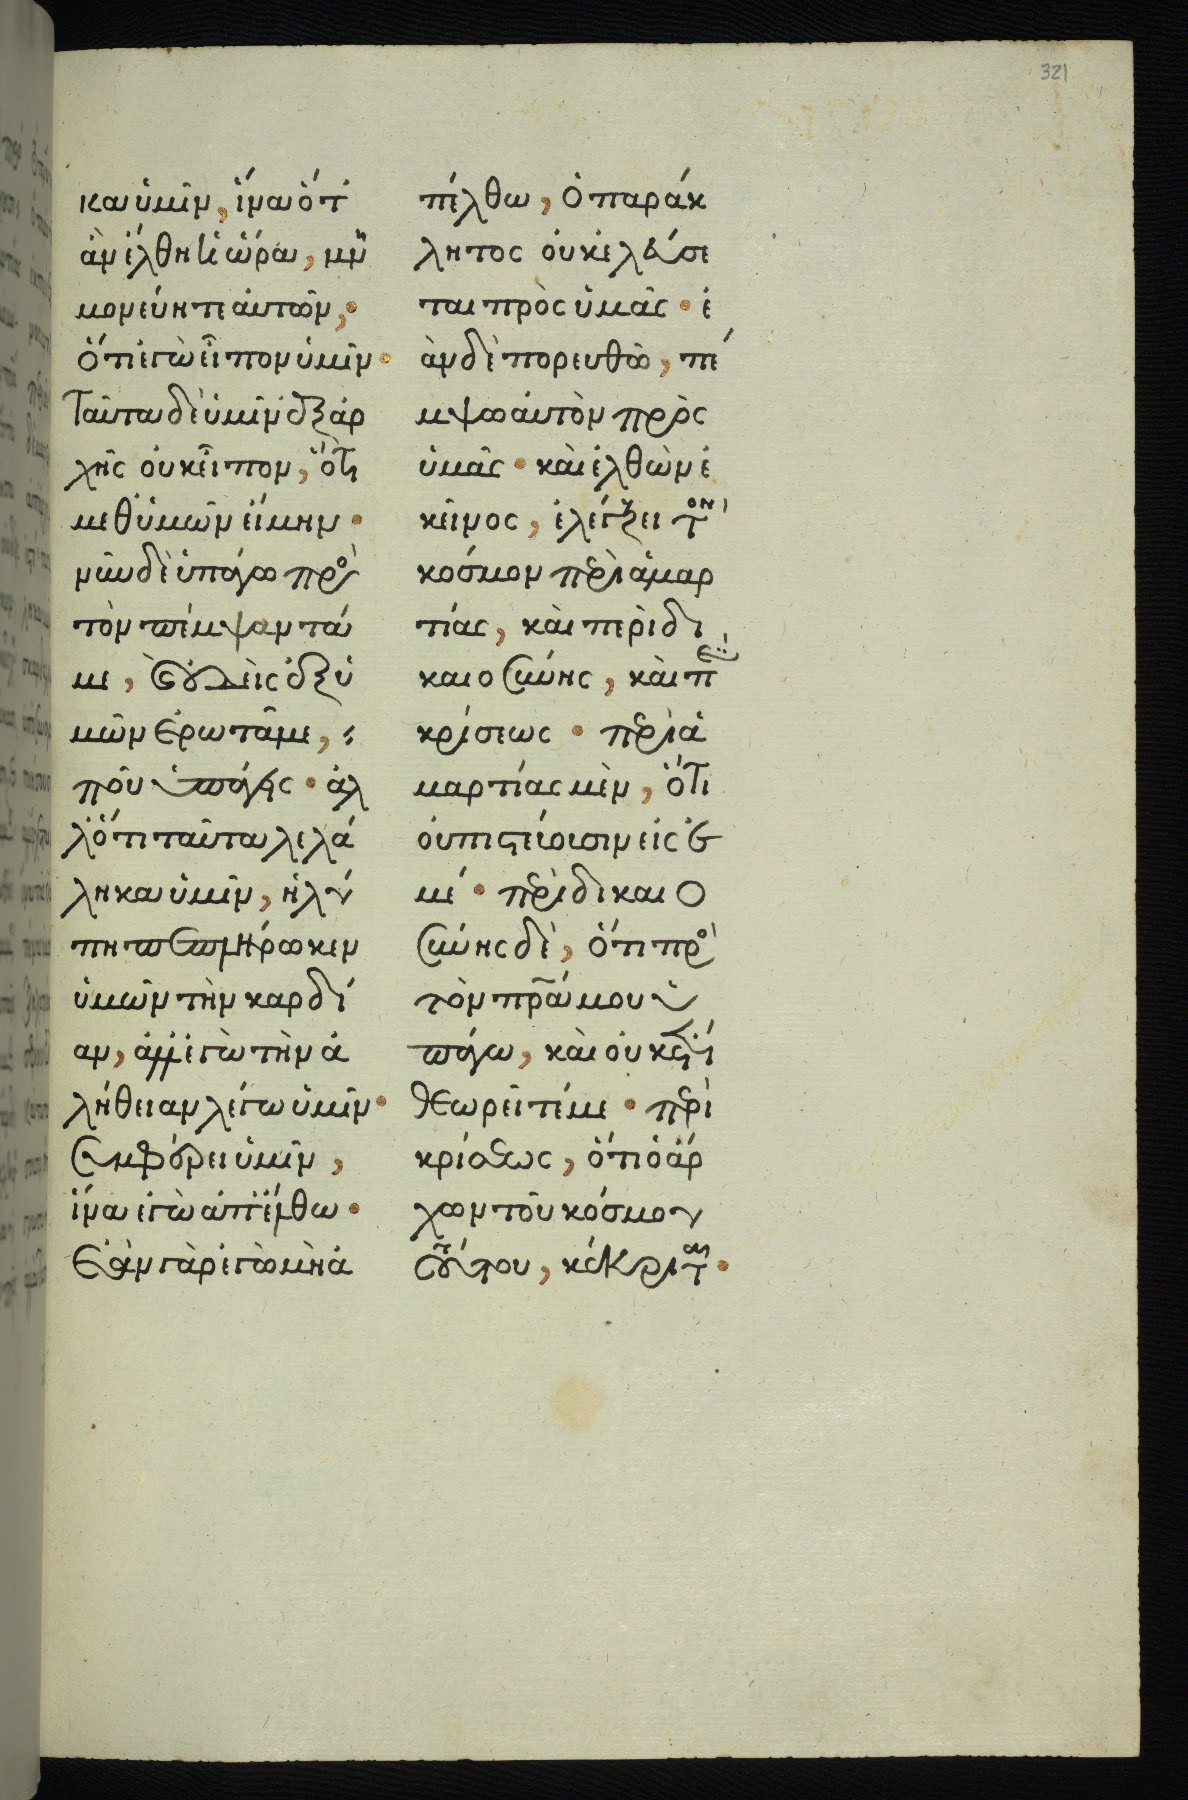 321
κα ὑμῖν, ἵνα ὅτ
ἂν ἔλθη ἡ ὥρα, μνη
μονεύητε αὐτῶν,
ὅτι ἐγὼ εἶπον ὑμῖν·
Ταῦτα δὲ ὑμῖν ἐξ ἀρ
χῆς οὐκ εἶπον, ὅτι
μεθ' ὑμῶν ἤμην·
νῦν δὲ ὑπάγω πρὸς
τὸν πέμψαντά
με, καὶ οὐδεὶς ἐξ ὑ
μῶν ἐρωτᾶ με,
ποῦ ὑπάγεις· ἀλ
λ' ὅτι ταῦτα λελά
ληκα ὑμῖν, ἡ λύ
πη πεπλήρωκεν
ὑμῶν τὴν καρδί
αν, ἀλλ' ἐγὼ τὴν ἀ
λήθειαν λέγω ὑμῖν·
συμφέρει ὑμῖν,
ἵνα ἐγὼ ἀπέλθω·
ἐὰν γὰρ ἐγὼ μὴ ἀ
πέλθω, ὁ παράκ
λητος οὐκ ἐλεύσε
ται πρὸς ὑμᾶς· ἐ
ὰν δὲ πορευθῶ, πέ
μψω αὐτὸν πρὸς
ὑμᾶς· καὶ ἐλθὼν ἐ
κεῖνος, ἐλέγξει τὸν
κόσμον περὶ ἁμαρ
τίας, καὶ περὶ δι
καιοσύνης, καὶ περὶ
κρίσεως· περὶ ἁ
μαρτίας μὲν, ὅτι
οὐ πιστεύουσιν εἰς ἐ
μέ· περὶ δικαιο
σύνης δὲ, ὅτι πρὸς
τὸν πρα μου ὑ
πάγω, καὶ οὐκ ἔτι
θεωρεῖτέ με· περὶ
κρίσεως, ὅτι ὁ ἄρ
χων τοῦ κόσμου
τούτου, κέκριται·